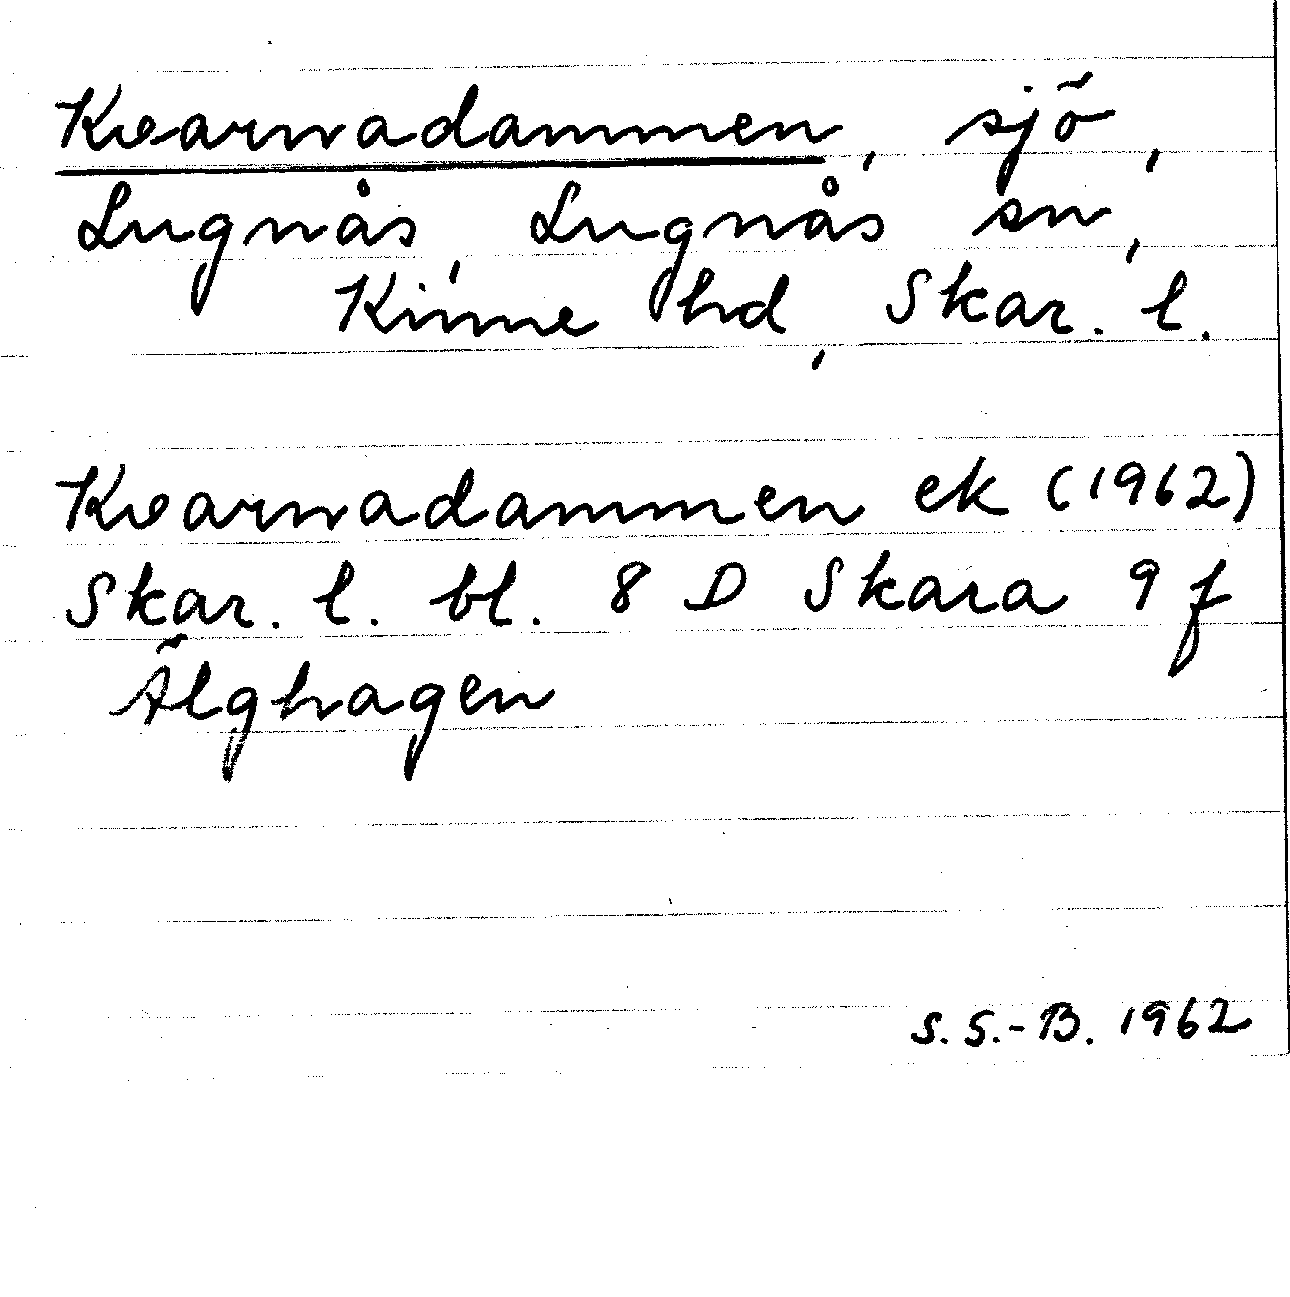 Kvarnadammen, sjö,
Lugnås, Lugnås sn,
Kinne hd, Skar. l.
Kvarnadammen ek (1962)
Skar. l. bl. 8 D Skara 9 f
Älghagen
S. S.-B. 1962